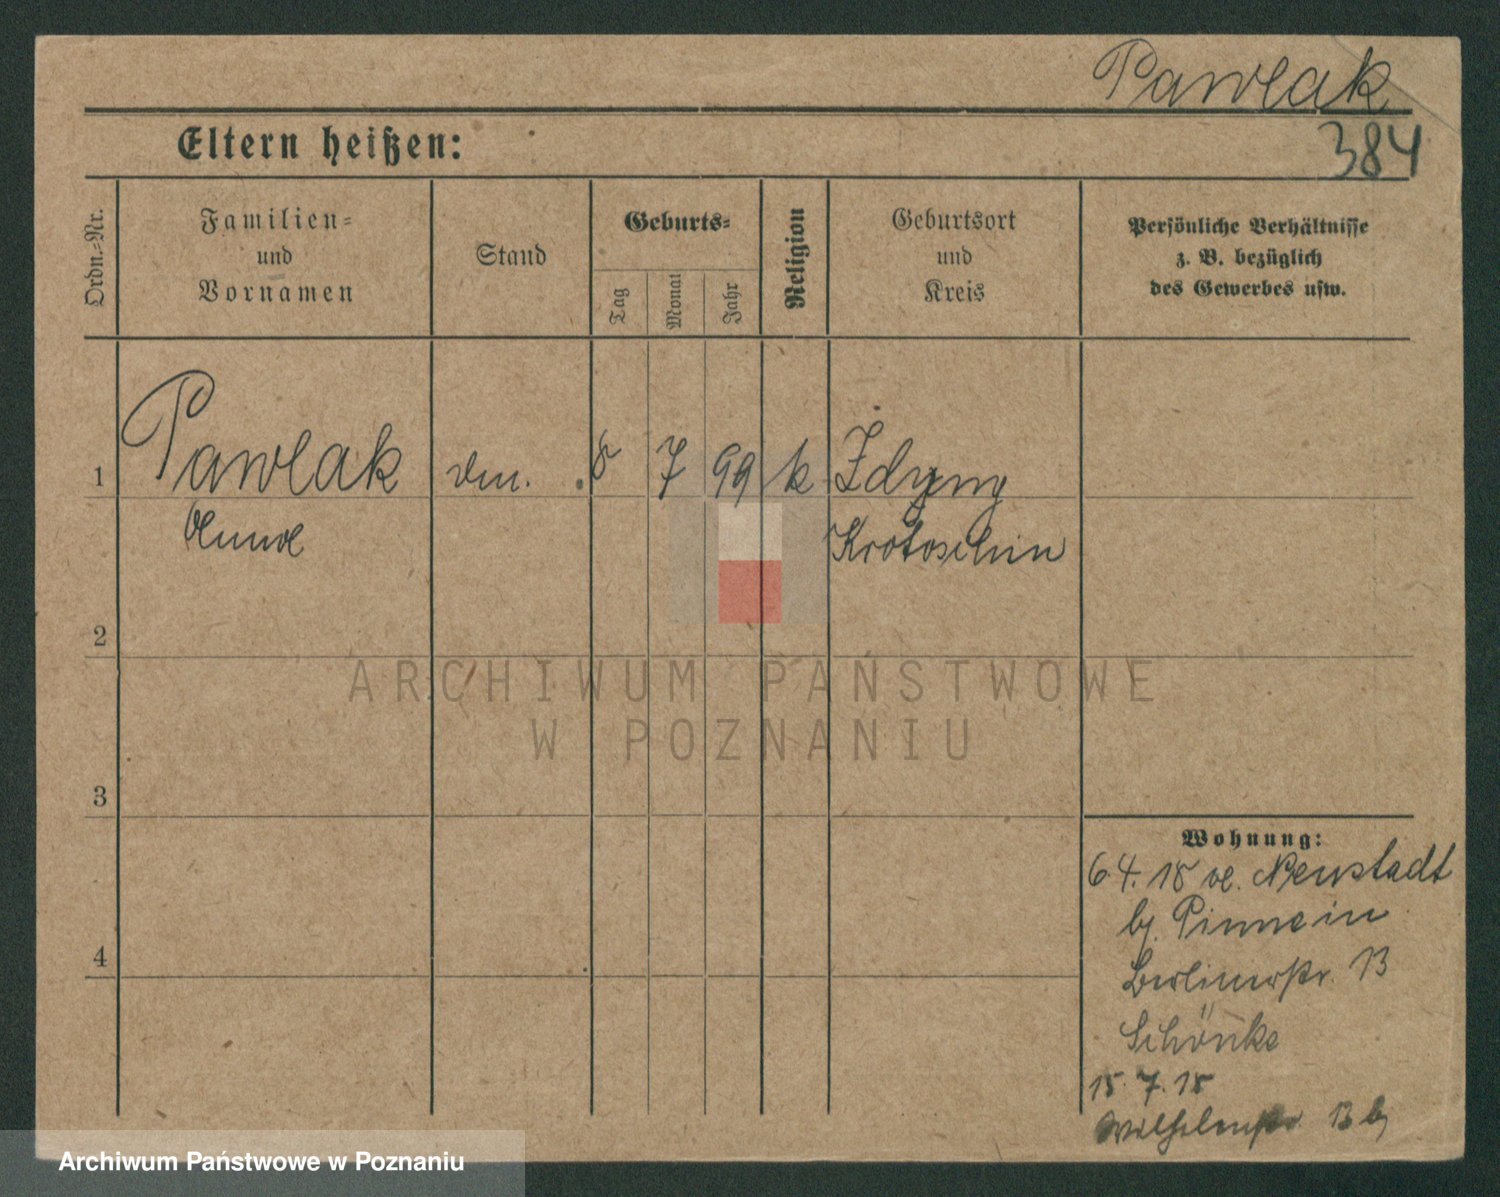 Pawlak
Eltern heißen:
384
Ordn.-Nr.
Familien-
und
Vornamen
Stand
Geburts-
Tag
Monat
Jahr
Religion
Geburtsort
und
Kreis
Persönliche Verhältnisse
z. B. bezüglich
des Gewerbes usw.
1
Pawlak
8
7
99
k
Zdzyny
Krotoschin
2
3
4
ARCHIWUM PAŃSTWOWE
W POZNANIU
Wohnung:
6 4. 18 Neustadt
b. Pinne in
Berlinerstr. 13
Schönke
15. 7. 18
Wilhelmstr. 13 b
Archiwum Państwowe w Poznaniu